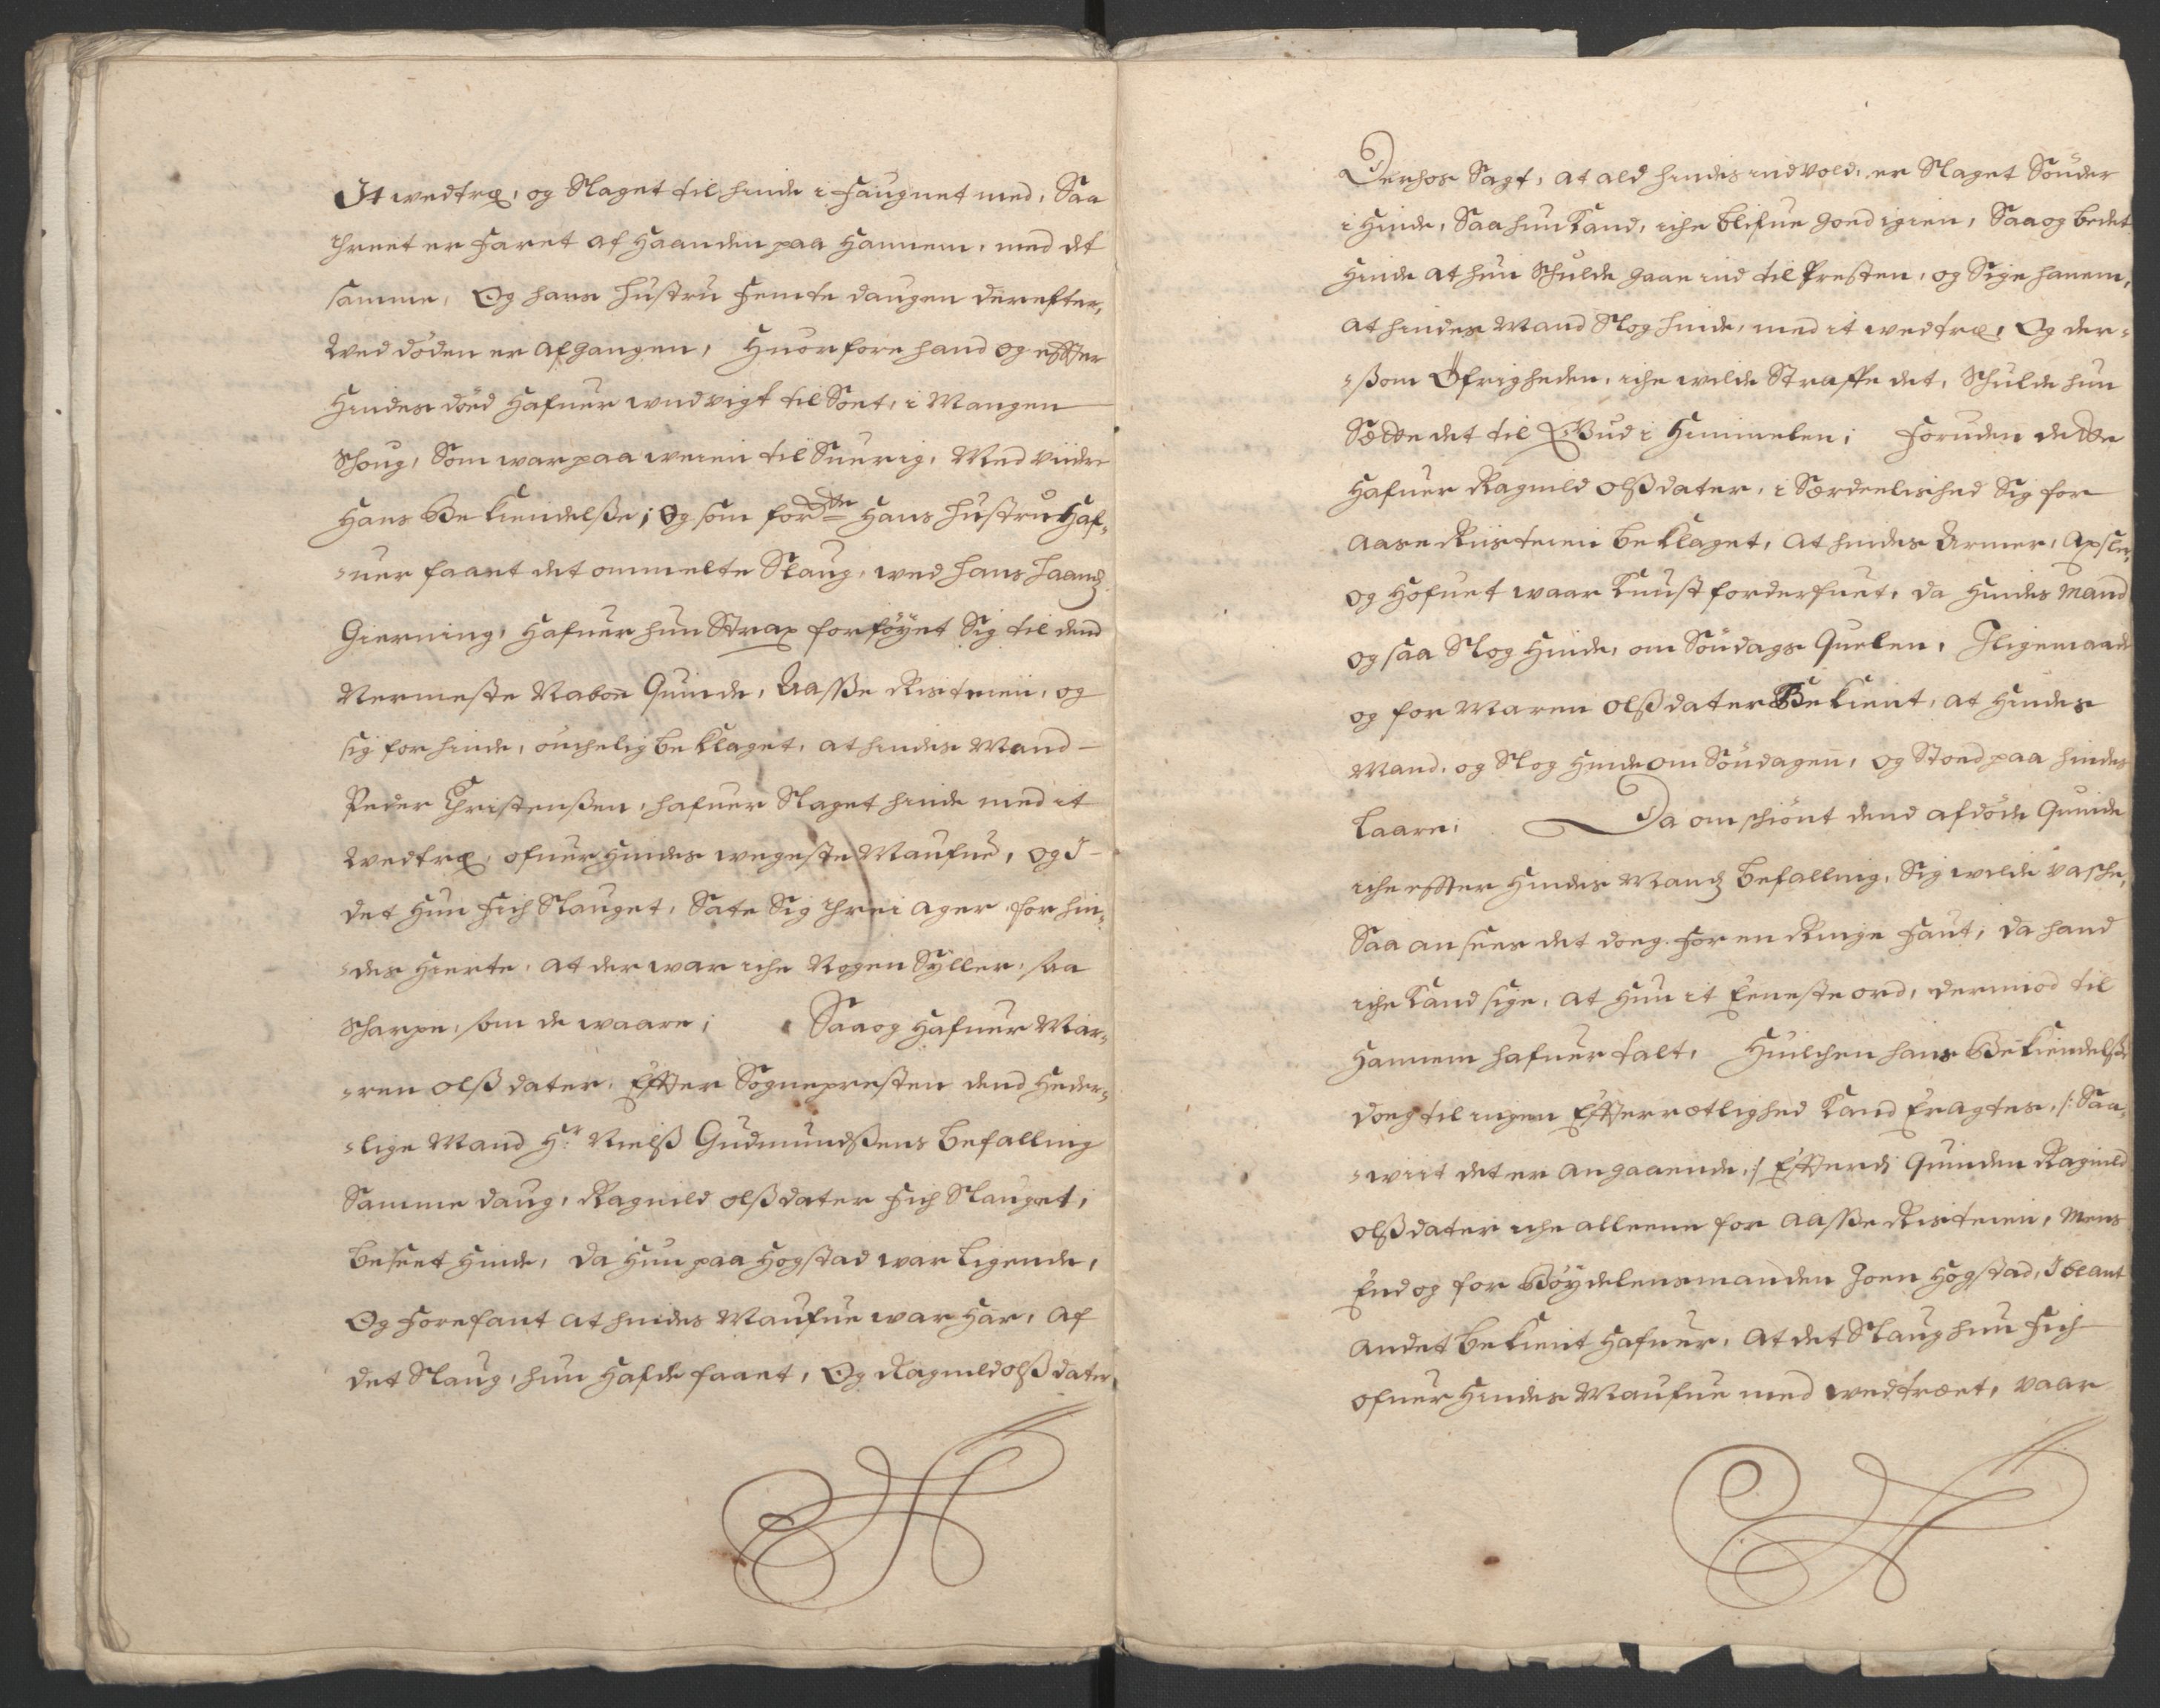 It wedtræ, og Slaget til hinde i Faugnet med, Saa
threet er faret af Haanden paa Hannem, med det
samme, Og hans hustru Femte daugen derefter,
Wed döden er afgangen, Huorfore hand og effter
Hindes död Hafuer undvigt til Soet, i Mangen
Schoug, Som war paa weien til Suerig, Med viidre
Hans Bekiendelße; Og som fordte Hans hustru Haf-
-uer faaet det ommelte Slaug, wed hans haandz
Gierning, Hafuer hun Strax forföÿet Sig til dend
Nermeste Naboe Quinde, Aasße Risteien, og
sig for hinde, ӱnchelig beklaget, at hindis Mand
Peder Christenßen, hafuer Slaget hinde med it
Wedtræ, ofuer Hindes wegeste Maufue, og I-
det Hun Fich Slauget, Sate Sig threi ager for hin-
-des Hierte, at der war iche Nogen Sÿller, saa
Scharpe, som de waare; Saa og Hafuer Mar-
-ren Olßdater, Effter Sognepresten dend Heder-
-lige Mand Hr: Nielß Gudmundßens Befalling
Samme daug, Ragnild Olßdater Fich Slauget,
Beseet Hinde, da Hun paa Hogstad war Ligende,
Og Forefant at hindes Maufue war Har, af
det Slaug, hun Hafde faaet, Og Ragnild Olßdater
Derhos Sagt, at ald hindes indvold, er Slaget Sönder
i Hinde, Saa hun Kand, iche blifue goed igien, Saa og bedet
Hinde at hun Schulde gaae ind til Presten, og Sige hanem,
at hindes Mand Slog hinde, med it wedtræ, Og der-
-ßom Öfrigheden, iche wilde Straffe det, Schulde hun
Sette det til Gud i Himmelen; Foruden dette
Hafuer Ragnild Olßdater, i Særdeelished Sig for
Aase Risteien beklaget, at hindes Armer, Axsler,
og Hofuet waar Knust forderfuet, da Hindes Mand
og saa Slog Hinde, om Söndags Quelen, Iligemaade
og for Maren Olßdater Bekient, at Hindes
Mand, og Slog Hinde om Söndagen, og Stoed paa hindes
Laare; Da omschiönt dend afdöde Quinde
iche effter Hindes Mandz befalling, Sig wilde vasche,
Saa ansees det doeg for en Ringe Faut, da hand
iche Kand sige, at Hun it Eeneste ord, dermod til
Hannem hafuer talt, Huilchen hans Bekiendelße
doeg til ingen Effterrætlighed Kand Eragtes, /: Saa-
-wiit det er angaaende :/ Efferdj Quinden Ragnild
Olßdater iche alleene for Aasße Risteien, Mens
End og for Böÿdelensmanden Joen Hogstad, Iblant
andet bekient Hafuer, at det Slaug hun Fich
ofuer Hindes Maufue med wedtræet, vaar